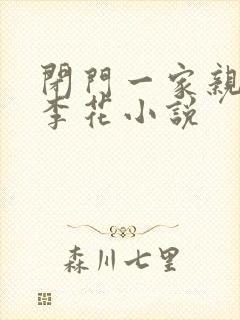 閉門一家親
李花小說
森川七里